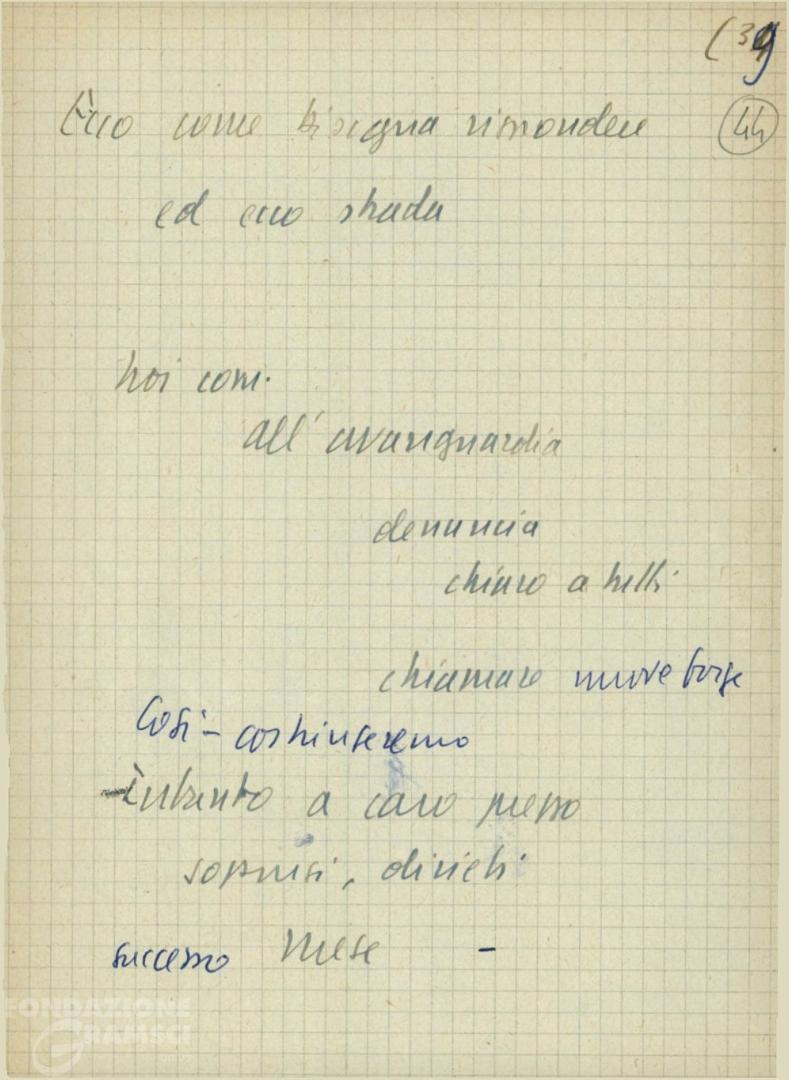 (39
Ecco come bisogna rispondere
44
ed ecco strada
Noi com.
all'avanguardia
denuncia
chiaro a tutti
chiamare nuove forze
Così - costringeremo
Intanto a caro prezzo
soprusi, divieti
successo mese -
FONDAZIONE
GRAMSCI